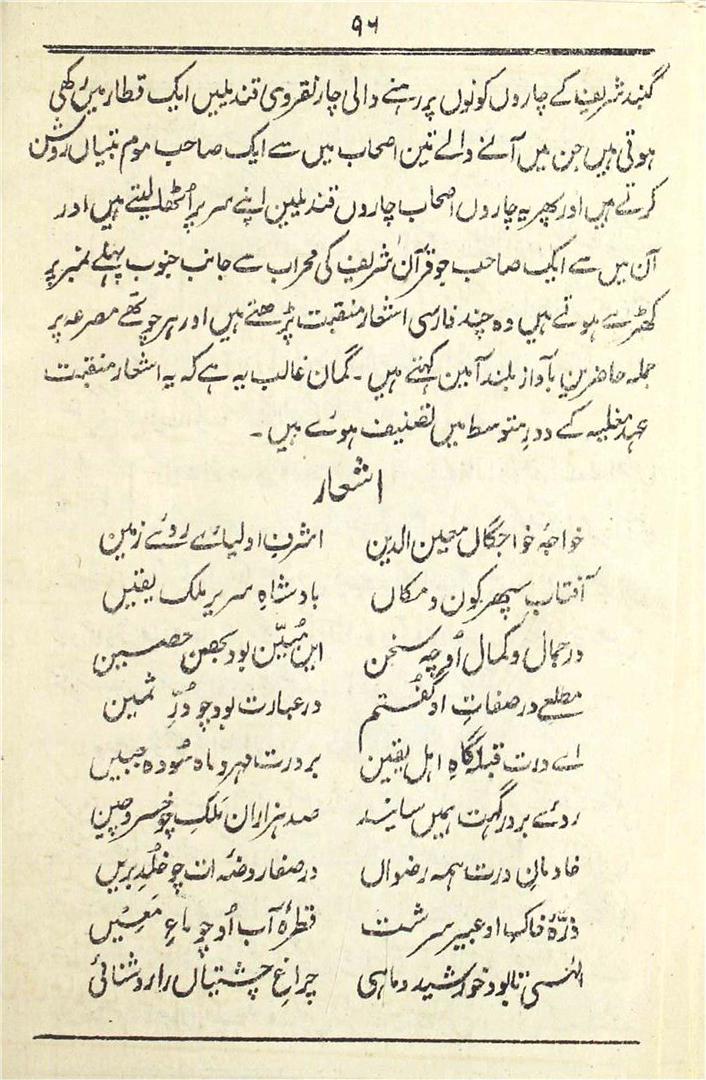 ۹۶
گنبد شریف کے چاروں کونوں پر رہنے والی چار نقروی قندیلیں ایک قطار میں رکھی
ہوتی ہیں جن میں آنے والے تین اصحاب میں سے ایک صاحب موم بتیاں روشن
کرتے ہیں اور پھر یہ چاروں اصحاب چاروں قندیلیں اپنے سر پر اُٹھا لیتے ہیں اور
اُن میں سے ایک صاحب جو قرآن شریف کی محراب سے جانب جنوب پہلے نمبر پر
کھڑے ہوتے ہیں وہ چند فارسی اشعار منقبت پڑھتے ہیں اور ہر چوتھے مصرعہ پر
جملہ حاضرین بآواز بلند آمین کہتے ہیں۔ گمان غالب یہ ہے کہ یہ اشعار منقبت
عہد مغلیہ کے دور متوسط میں تصنیف ہوئے ہیں۔
اشعار
خواجۂ خواجگاں معین الدین اشرف اولیائے روئے زمین
آفتاب سپہر کون و مکاں بادشاہِ سریر ملک یقیں
در جمال و کمال اُو چہ سخن ایں مُبیّن بود بحصن حصین
مطلعے در صفات او گفتم در عبارت بود چو دُرِّ ثمین
اے درت قبلہ گاہِ اہل یقین بر درت مہر و ماہ سُودہ جبیں
روئے بر درگہت ہمیں سایند صد ہزاراں مَلکِ چو خسرو چین
خادمانِ درت ہمہ رضواں در صفا روضہ ات چو خُلدِ بریں
ذرّۂ خاک او عبیر سرشت قطرۂ آب اُو چو ماءِ مَعِیْں
الٰہی تا بود خورشید و ماہی چراغِ چشتیاں را روشنائی